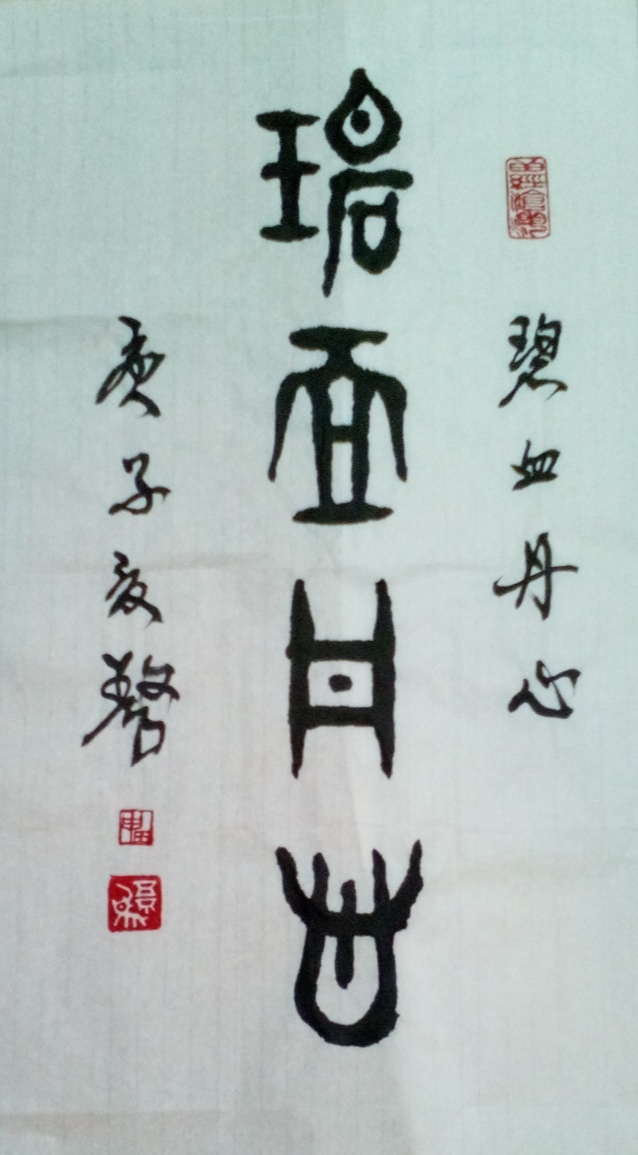 碧血丹心
碧血丹心
庚子夏